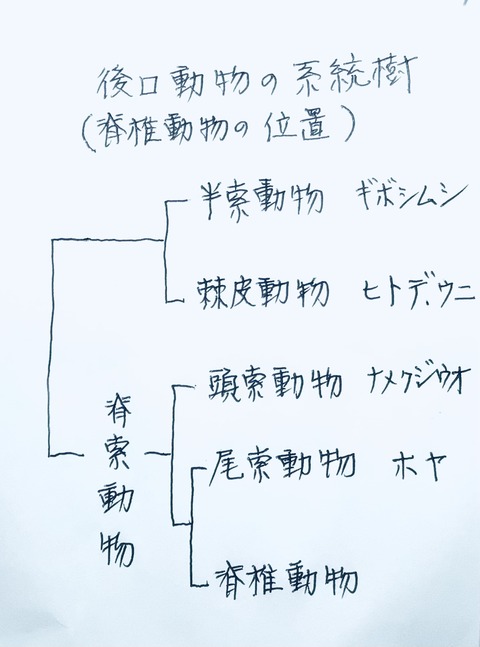 後口動物の系統樹
(脊椎動物の位置)
半索動物 ギボシムシ
棘皮動物 ヒトデ、ウニ
頭索動物 ナメクジウオ
脊索動物
尾索動物 ホヤ
脊椎動物